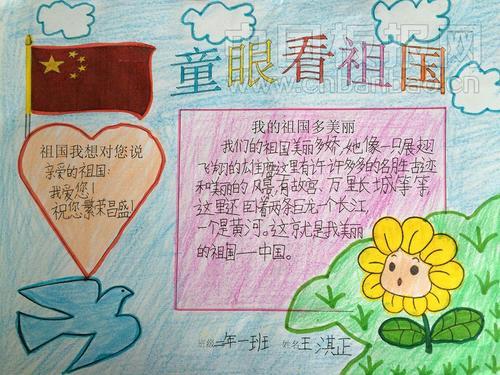 童眼看祖国
中国板报网
www.cnbanbao.cn
祖国我想对您说
亲爱的祖国:
我爱您!
祝您繁荣昌盛!
我的祖国多美丽
我们的祖国美丽多娇,她像一只展翅
飞翔的雄鹰这里有许许多多的名胜古迹
和美丽的风景,有故宫、万里长城等等
这里还卧着两条巨龙一个长江,
一个是黄河。这就是我美丽
的祖国——中国。
班级二年一班 姓名王淇正